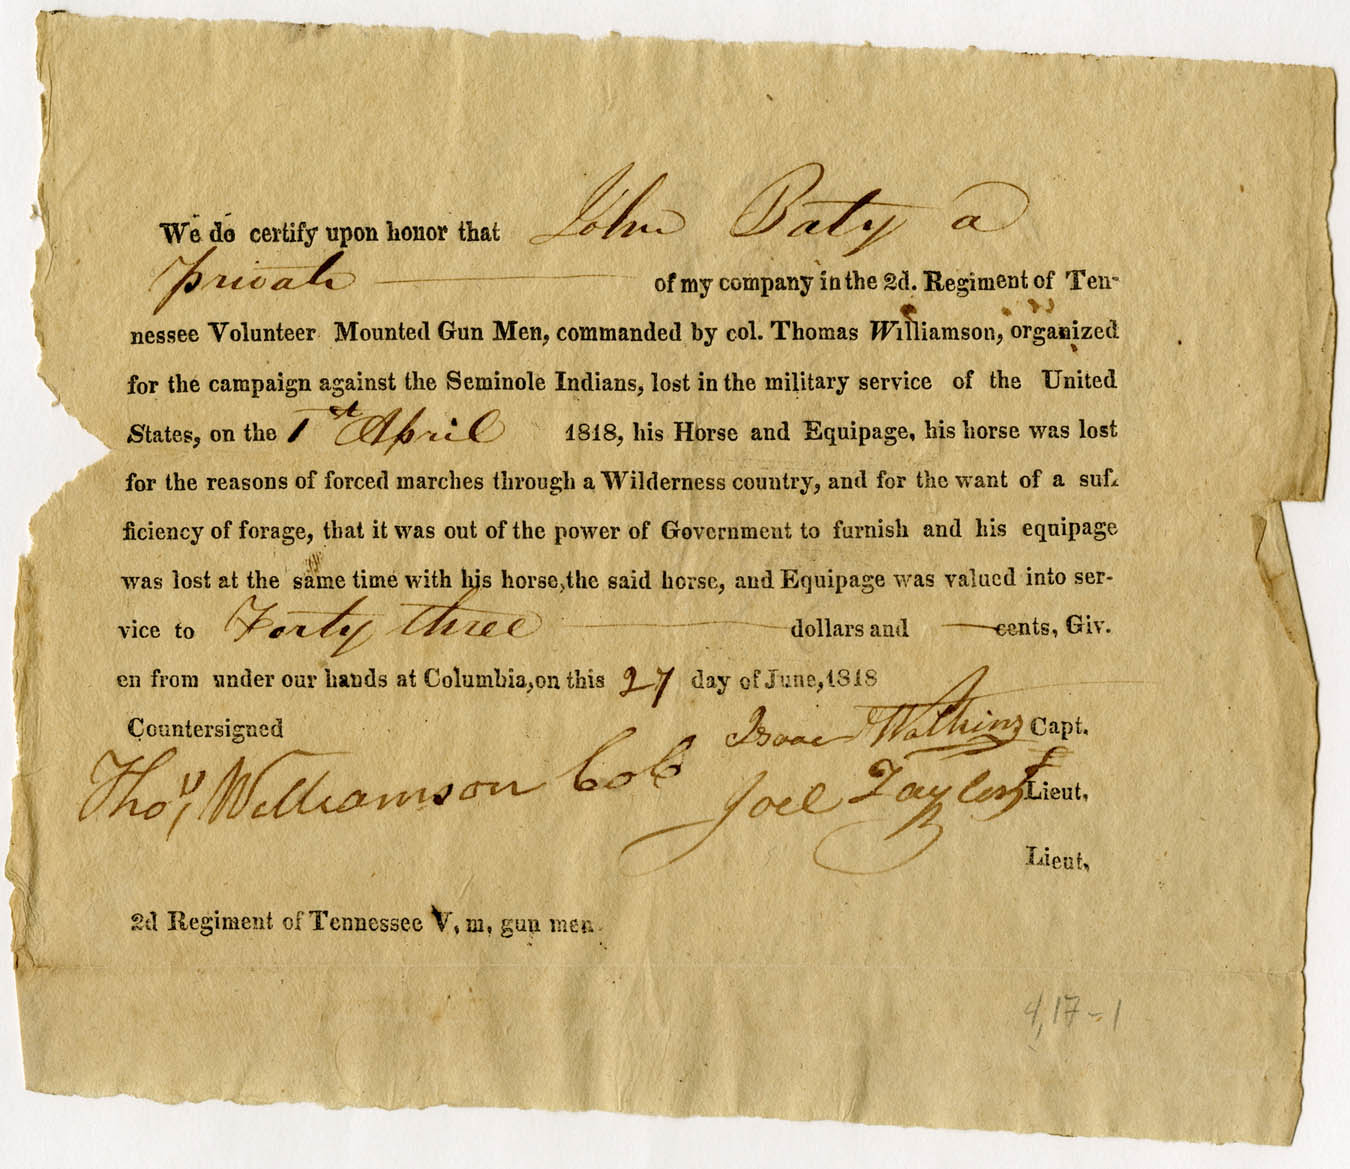 We do certify upon honor that John Baty a
private of my company in the 2d. Regiment of Ten-
nessee Volunteer Mounted Gun Men, commanded by col. Thomas Williamson, organized
for the campaign against the Seminole Indians, lost in the military service of the United
States, on the 1st April 1818, his Horse and Equipage, his horse was lost
for the reasons of forced marches through a Wilderness country, and for the want of a suf-
ficiency of forage, that it was out of the power of Government to furnish and his equipage
was lost at the same time with his horse, the said horse, and Equipage was valued into ser-
vice to Forty three dollars and cents, Giv.
en from under our hands at Columbia, on this 27 day of June, 1818
Countersigned Isaac Watkins Capt.
Thos Williamson Col Joel Taylor Lieut,
Lieut,
2d Regiment of Tennessee V, m, gun men.
4,17-1